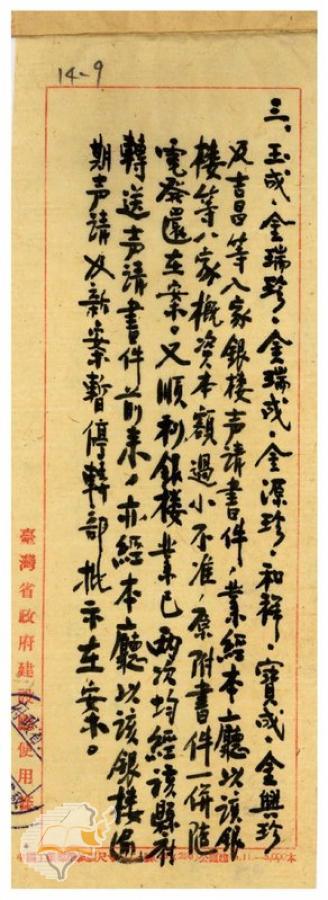 14-9
三、玉成、金瑞珍、金瑞成、金源珍、和祥、寶成、金興珍
及吉昌等八家銀樓声請書件，業經本廳以該銀
樓等八家概資本額過小不准，原附書件一併隨
電發還在案。又順利銀樓業已兩次均經該縣府
轉送声請書件前来，亦經本廳以該銀樓逾
期声請及新案暫停轉部批示在案。
臺灣省政府建設廳使用